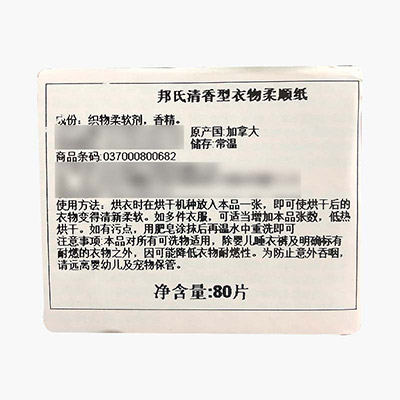 邦氏清香型衣物柔顺纸
成份：织物柔软剂，香精。
原产国:加拿大
储存:常温
商品条码:037000800682
使用方法：烘衣时在烘干机种放入本品一张，即可使烘干后的
衣物变得清新柔软。如多件衣服，可适当增加本品张数，低热
烘干。如有污点，用肥皂涂抹后再温水中重洗即可
注意事项:本品对所有可洗物适用，除婴儿睡衣裤及明确标有
耐燃的衣物之外，因可能降低衣物耐燃性。为防止意外吞咽，
请远离婴幼儿及宠物保管。
净含量:80片